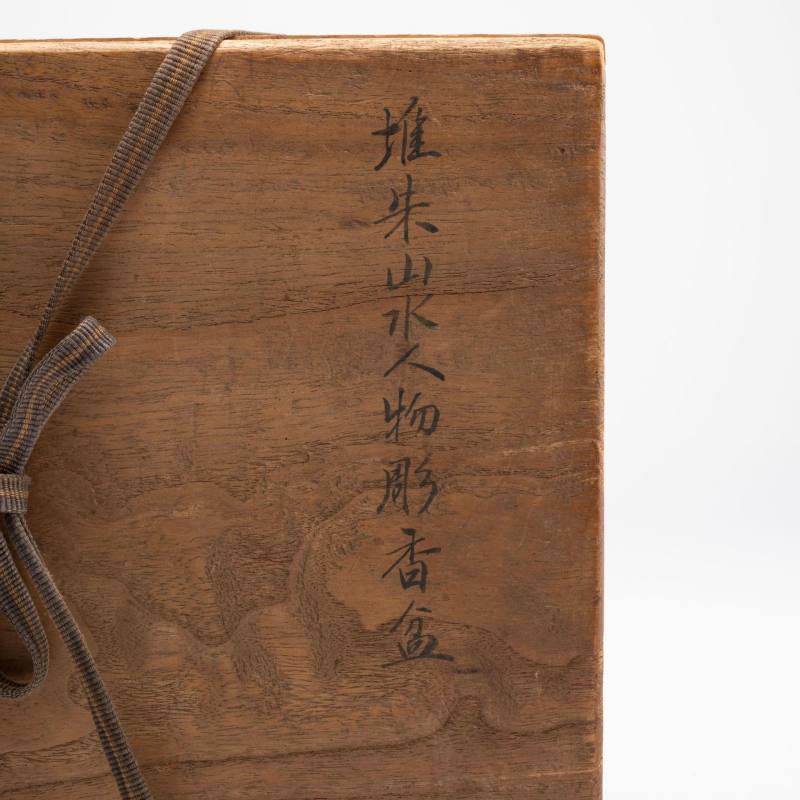 堆朱山水人物彫香盆